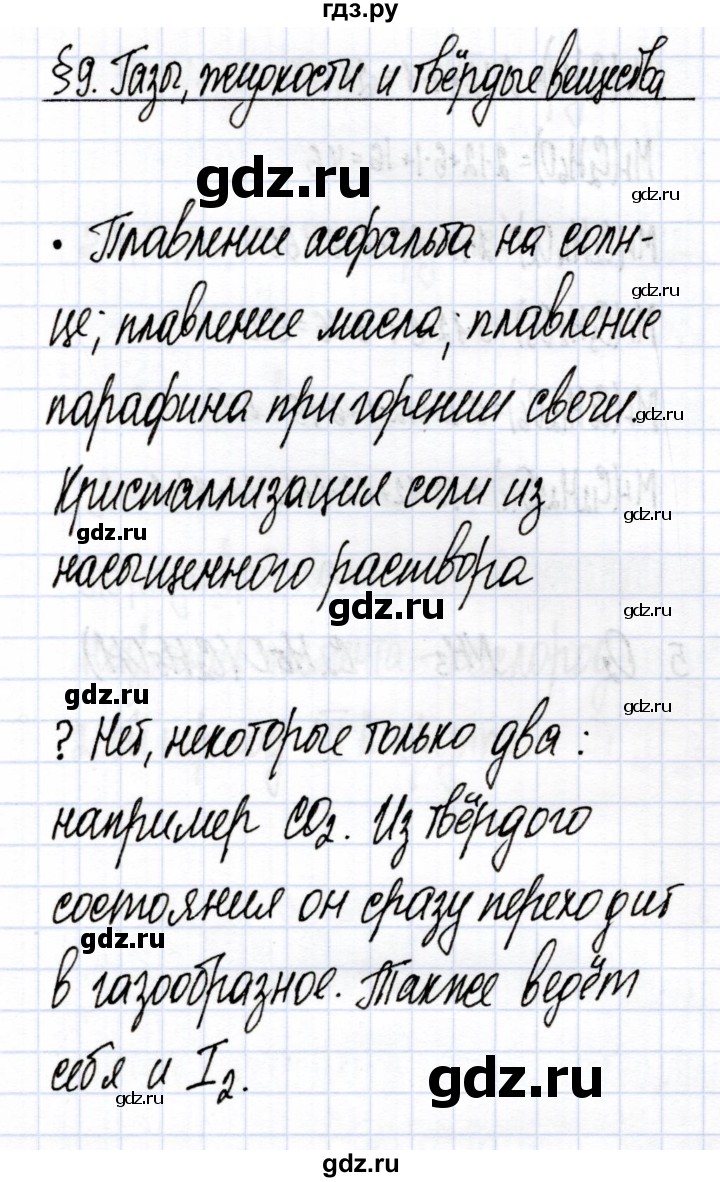 гдз.ру
§9. Газы, жидкости и твёрдые вещества.
gdz.ru
gdz.ru
• Плавление асфальта на солн-
gdz.ru
це; плавление масла; плавление
gdz.ru
парафина при горении свечи.
gdz.ru
Кристаллизация соли из
gdz.ru
gdz.ru
насыщенного раствора
gdz.ru
gdz.ru
gdz.ru
gdz.ru
? Нет, некоторые только два:
например CO₂. Из твёрдого
состояния он сразу переходит
gdz.ru
в газообразное. Также ведёт
себя и I₂.
gdz.ru
gdz.ru
gdz.ru